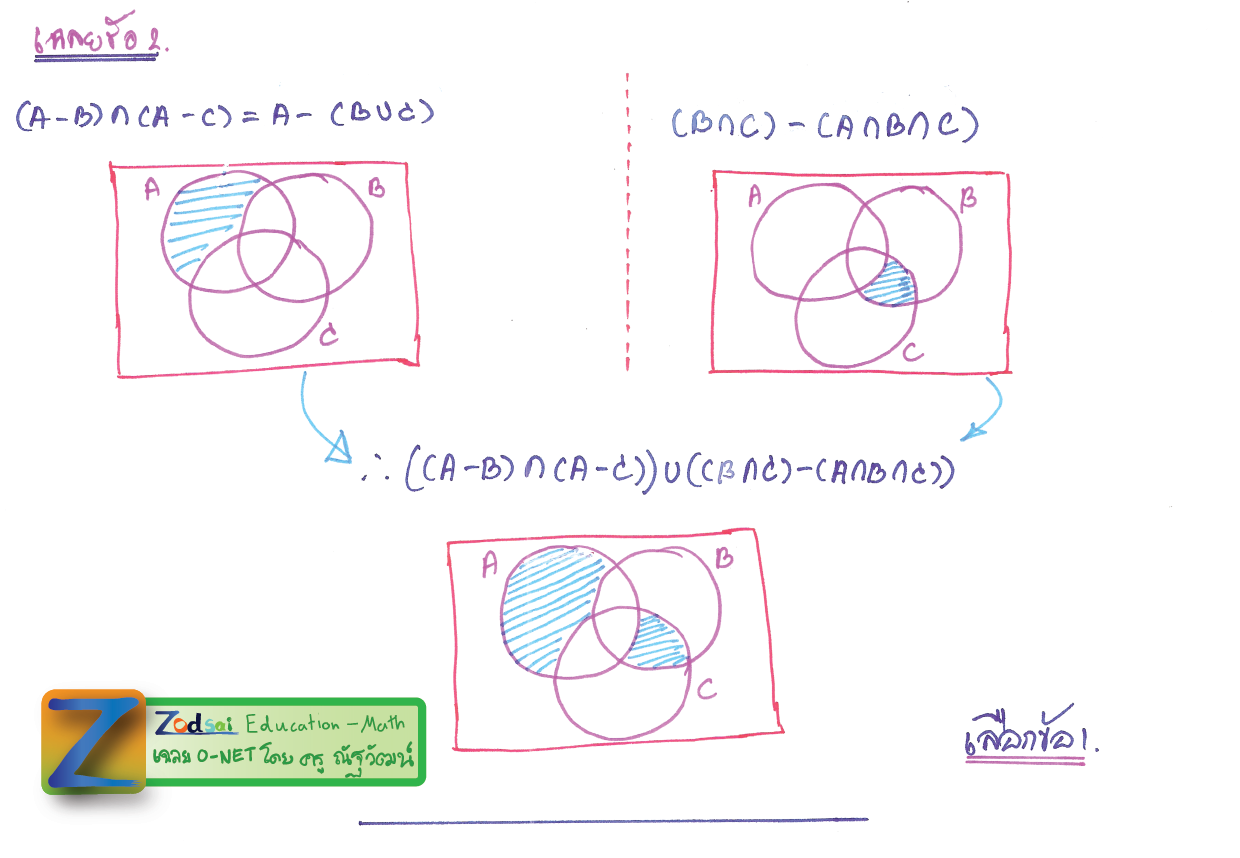 เฉลยข้อ 2.
(A-B)∩(A-C) = A-(B∪C)
(B∩C)-(A∩B∩C)
A B
C
A B
C
∴ ((A-B)∩(A-C))∪((B∩C)-(A∩B∩C))
A B
C
Z Zodsai Education - Math
เฉลย O-NET โดย ครู ณัฐวัฒน์
เลือกข้อ 1.